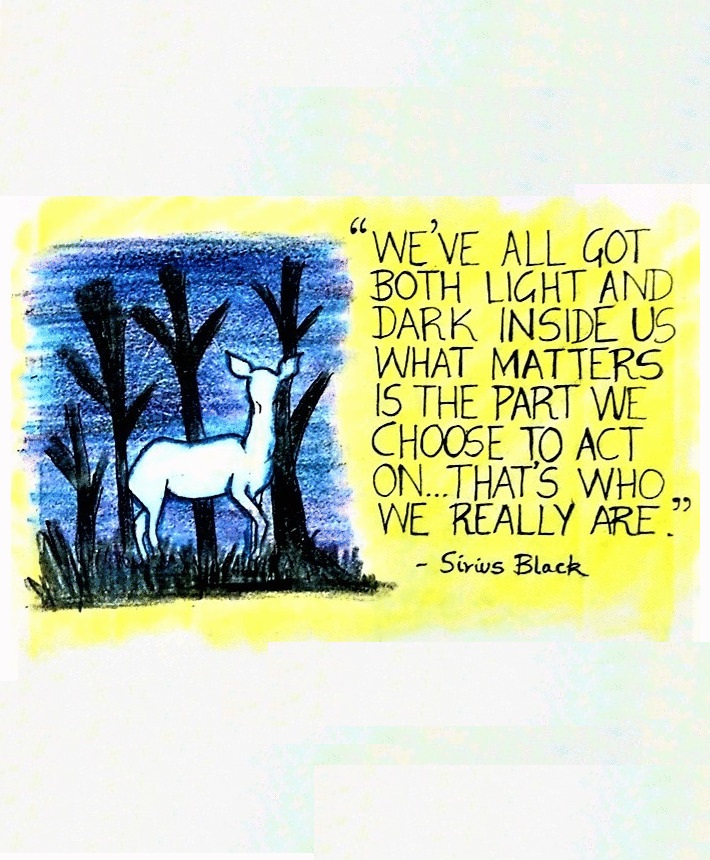 “WE'VE ALL GOT
BOTH LIGHT AND
DARK INSIDE US
WHAT MATTERS
IS THE PART WE
CHOOSE TO ACT
ON...THAT'S WHO
WE REALLY ARE.”
- Sirius Black